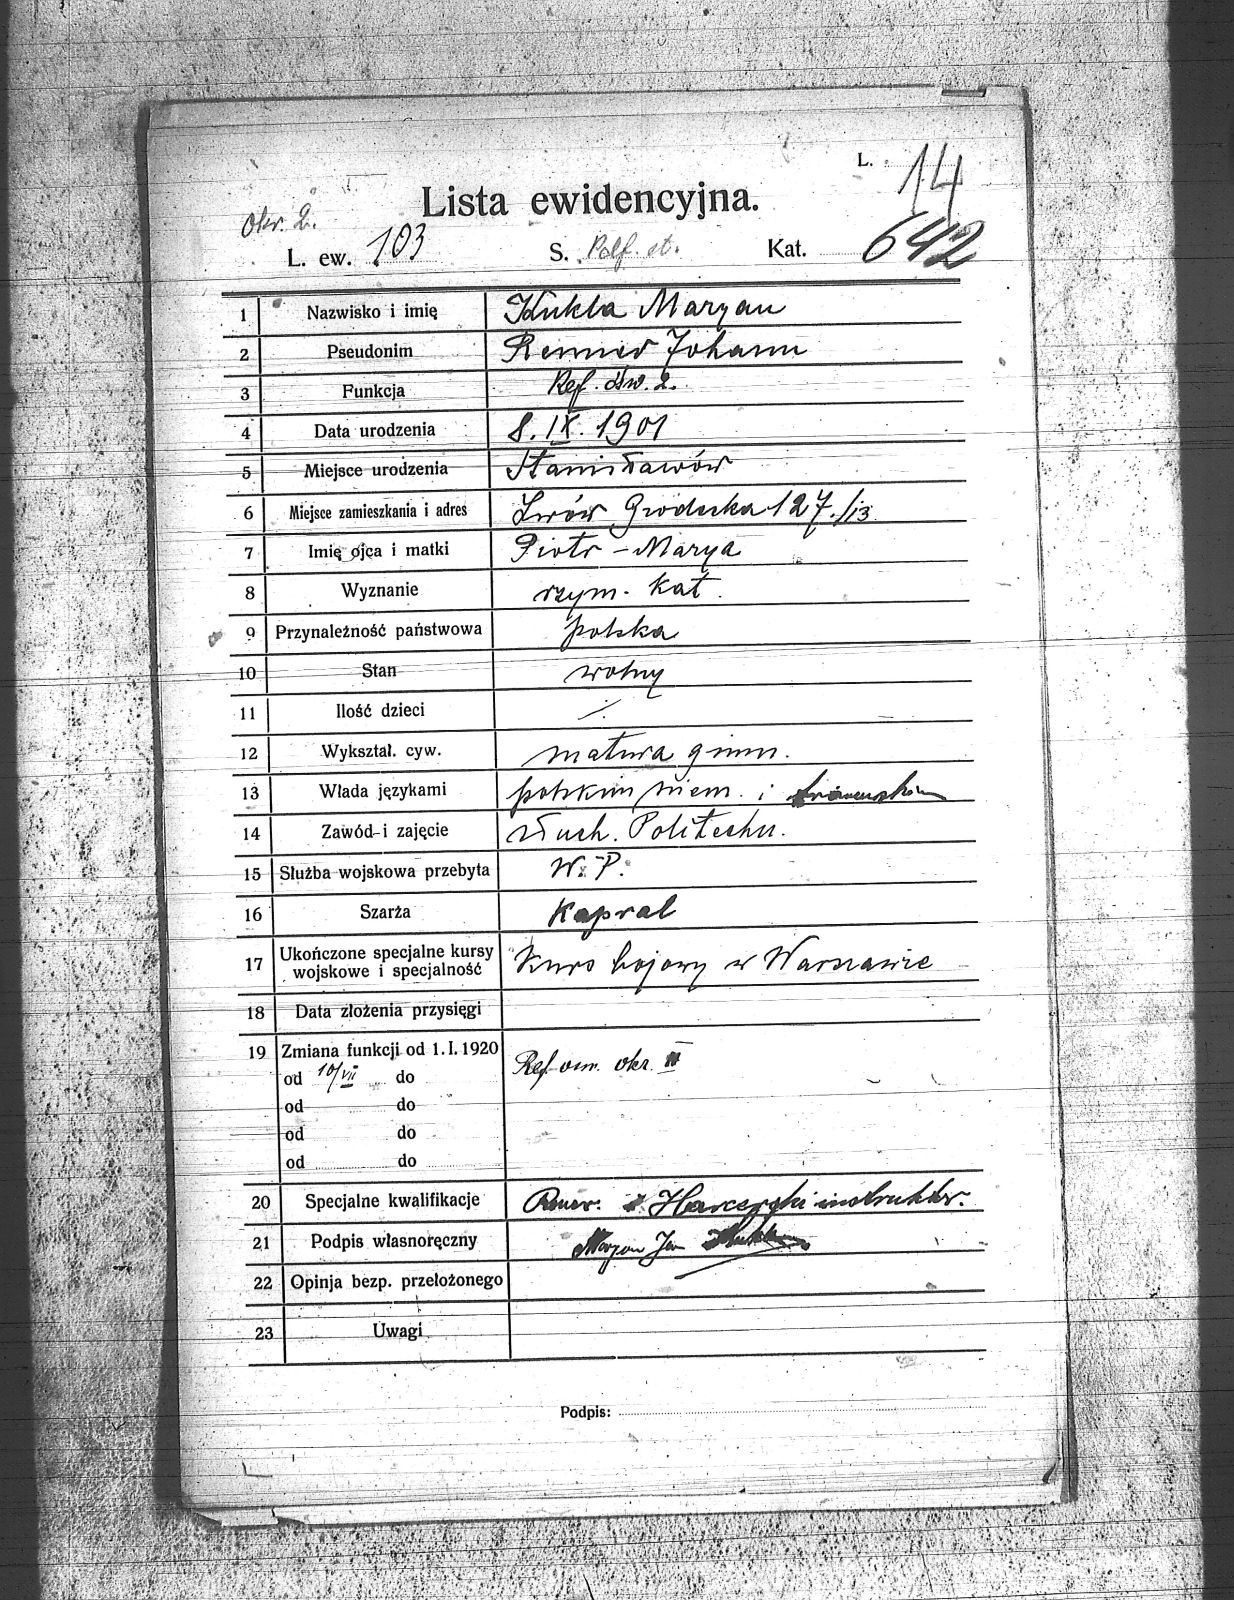 L. 14
Lista ewidencyjna.
Okr. 2.
L. ew. 103 S. Kat. 642
1 Nazwisko i imię Kukla Maryan
2 Pseudonim Renner Johann
3 Funkcja Ref. ośw. 2.
4 Data urodzenia 8. IX. 1901
5 Miejsce urodzenia Stanisławów
6 Miejsce zamieszkania i adres Lwów Grodecka 127./13.
7 Imię ojca i matki Piotr - Marya
8 Wyznanie rzym. Kat.
9 Przynależność państwowa polska
10 Stan wolny
11 Ilość dzieci /.
12 Wykształ. cyw. matura gimn.
13 Włada językami polskim niem. i
14 Zawód i zajęcie słuch. Politechn.
15 Służba wojskowa przebyta W. P.
16 Szarża Kapral
17 Ukończone specjalne kursy
wojskowe i specjalność Kurs bojowy w Warszawie
18 Data złożenia przysięgi
19 Zmiana funkcji od 1. I. 1920
od 10/VII do Ref. okr. II
od do
od do
od do
20 Specjalne kwalifikacje Harcerski instruktor.
21 Podpis własnoręczny Maryan Jan Kukla
22 Opinja bezp. przełożonego
23 Uwagi
Podpis: